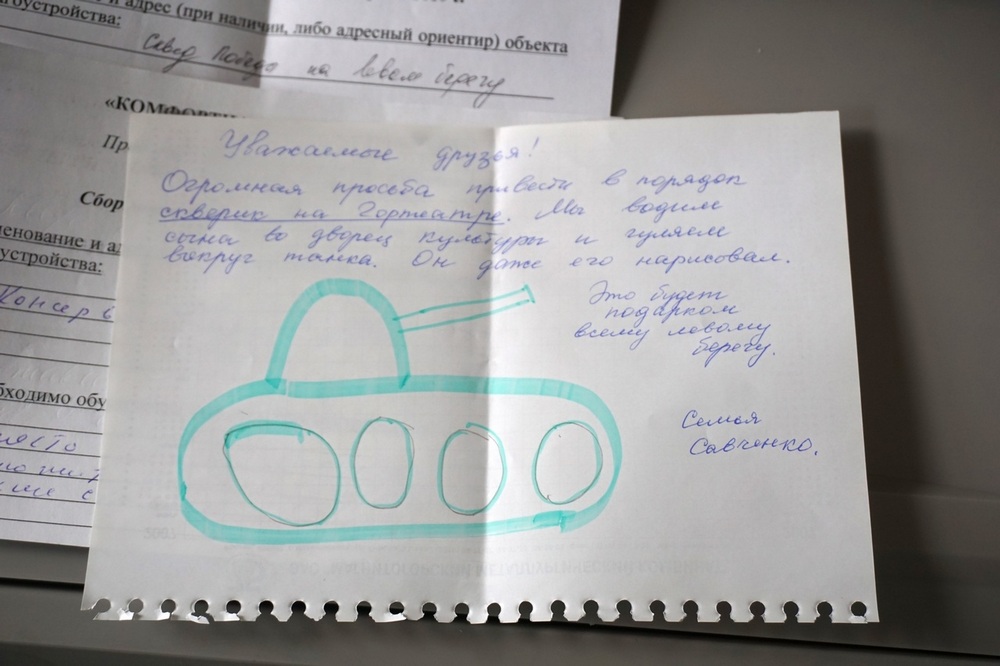 и адрес (при наличии, либо адресный ориентир) объекта
агоустройства:
Сквер Победы на левом берегу
«КОМФОРТН
Пр
Сбор
менование и ад
оустройства:
Консерв
бходимо обу
место
Уважаемые друзья!
Огромная просьба привести в порядок
скверик на Гортеатре. Мы водим
сына во дворец культуры и гуляем
вокруг танка. Он даже его нарисовал.
Это будет
подарком
всему левому
берегу.
Семья
Савченко.